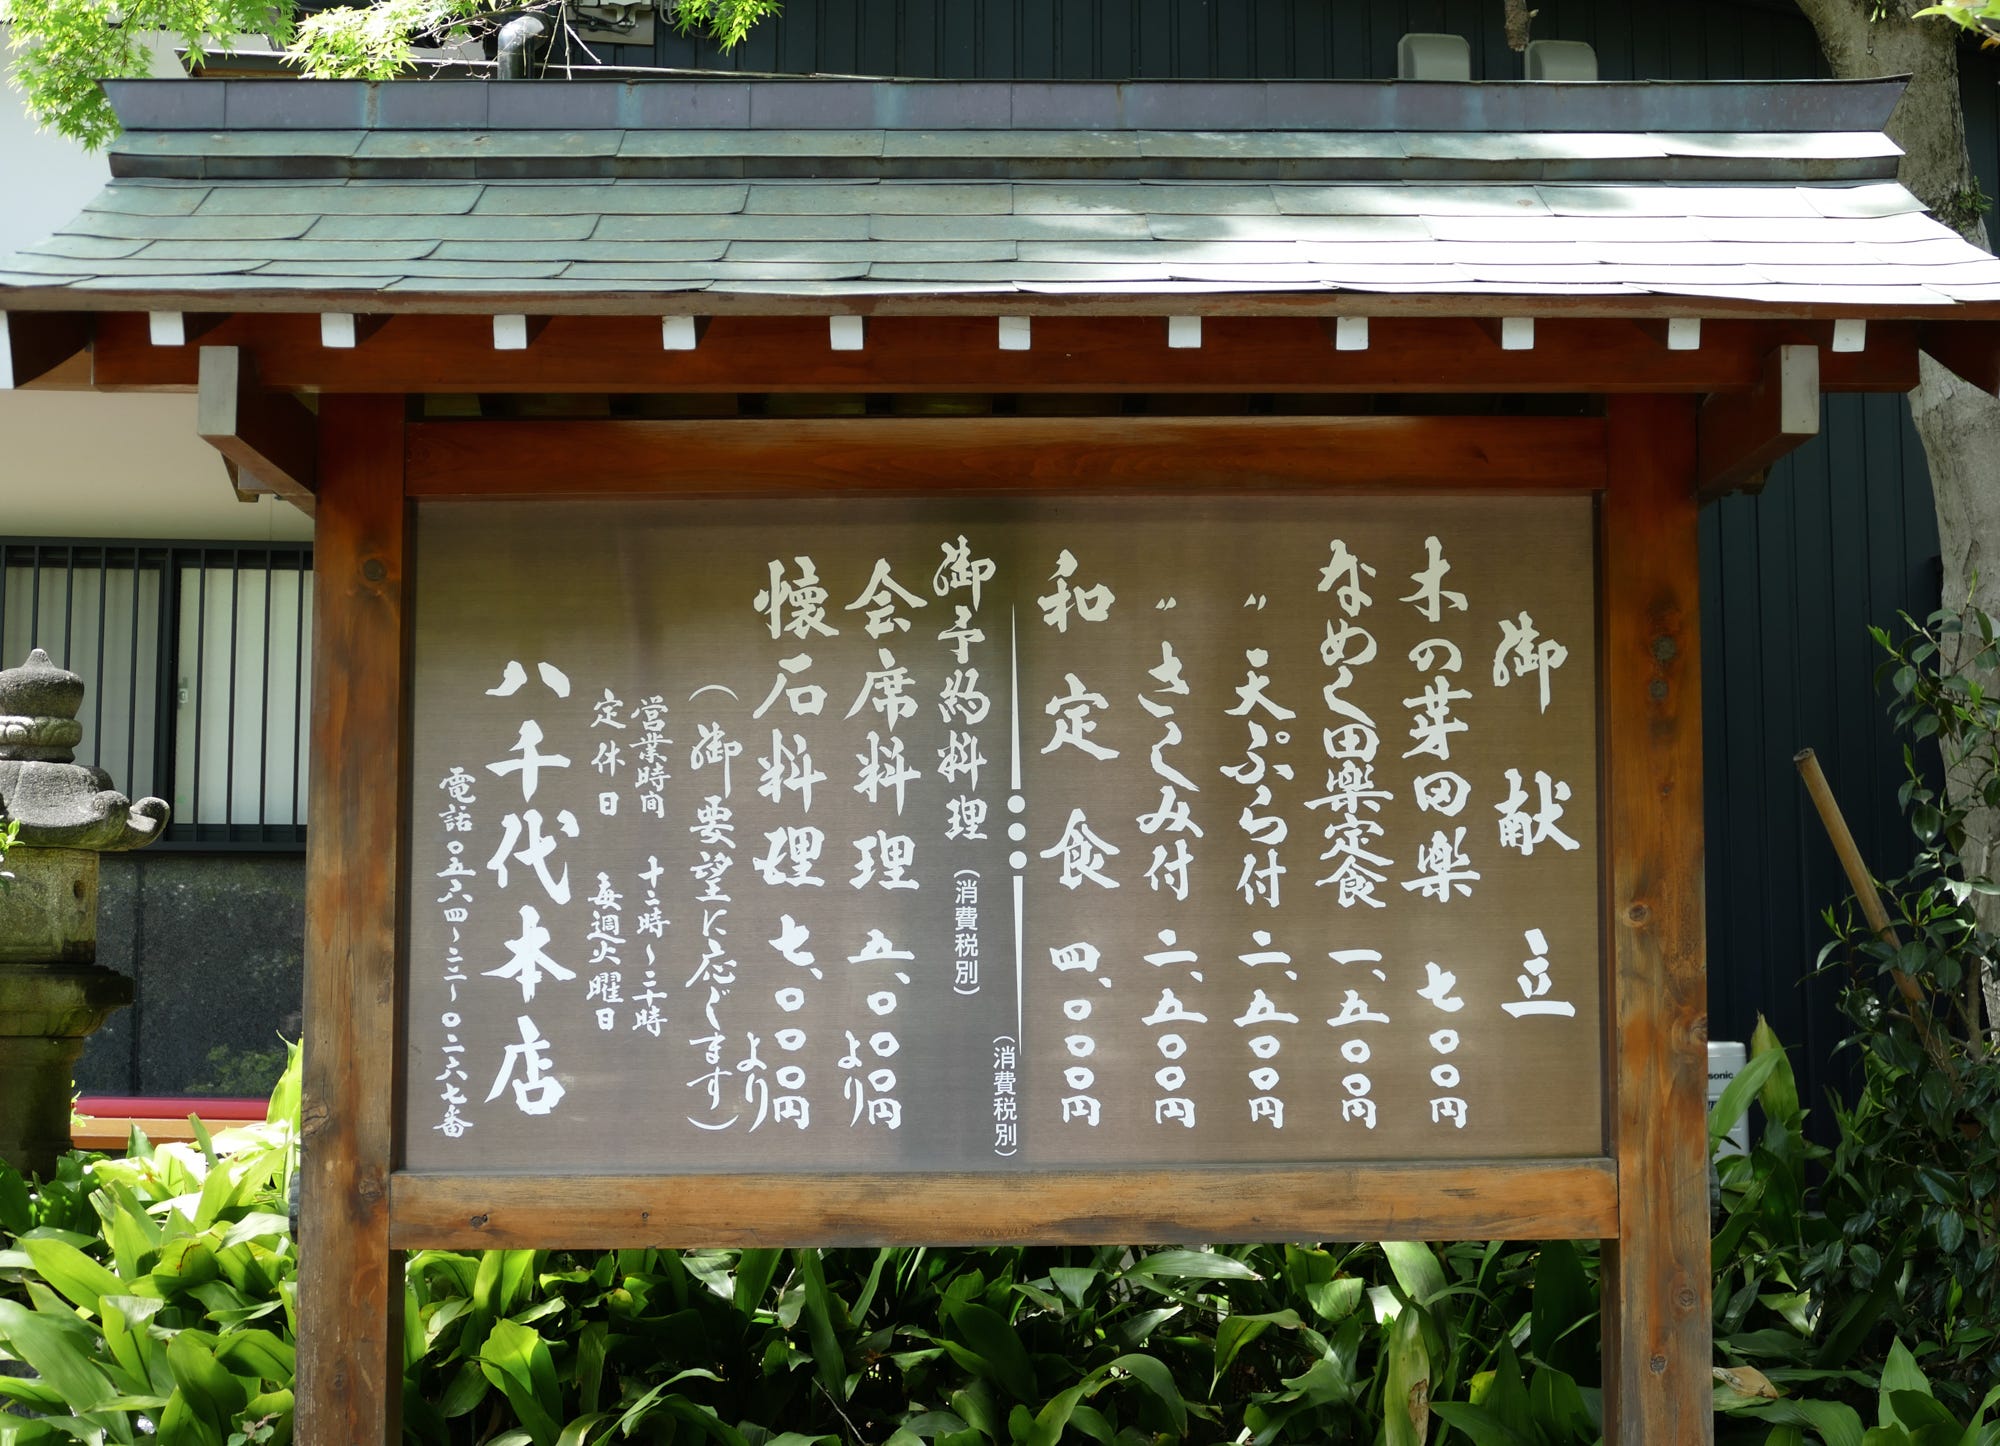 御献立
木の芽田楽 七〇〇円
なめし田楽定食 一、五〇〇円
〃 天ぷら付 二、五〇〇円
〃 さしみ付 二、五〇〇円
和定食 四、〇〇〇円
(消費税別)
御予約料理 (消費税別)
会席料理 五、〇〇〇円より
懐石料理 七、〇〇〇円より
(御要望に応じます)
営業時間 十二時〜二十時
定休日 毎週火曜日
八千代本店
電話〇五六四〜二二〜〇二六七番
sonic